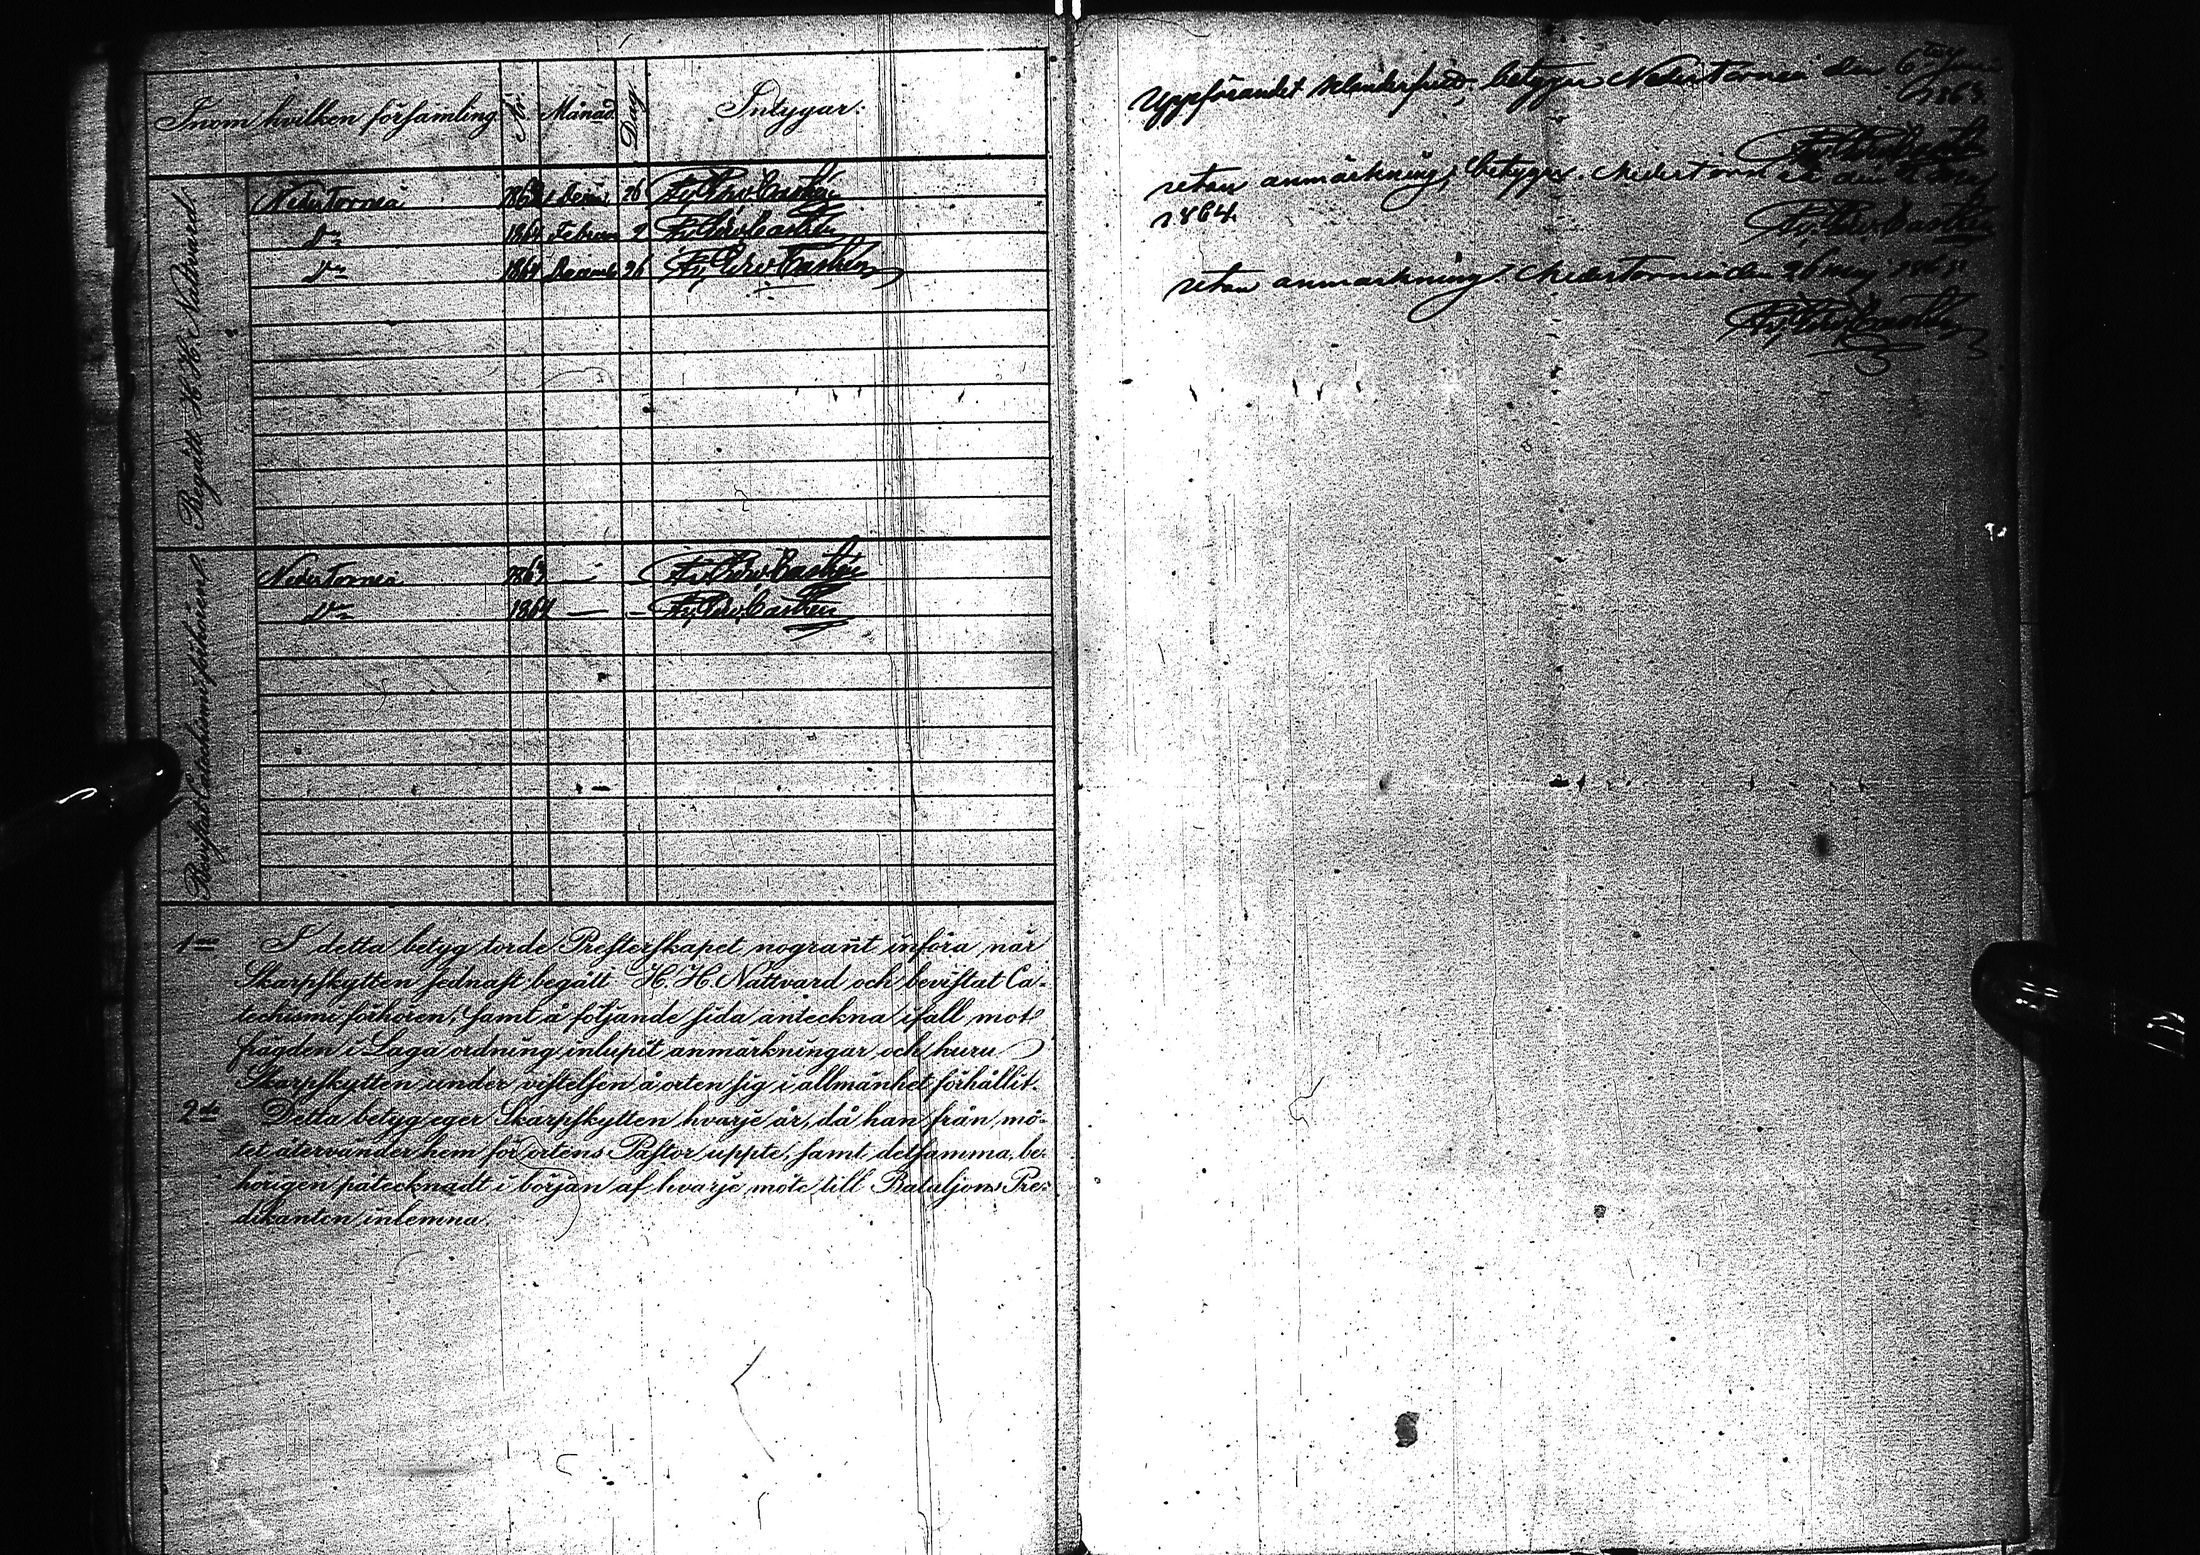 Inom hvilken församling. År. Månad. Dag. Intygar.
Begått H. H. Nattvard.
NederTorneå 1863 Decem 26 Fr. Wm Castrén
Do 1864 Februar 2 Fr. Wm Castrén
Do 1864 December 26 Fr. Wm Castrén
Bevistat Catechismi förhören
NederTorneå 1863 — — Fr. Wm Castrén
Do 1864 — — Fr. Wm Castrén
1mo I detta betyg torde Presterskapet nogrant införa när
Skarpskytten sednast begått H. H. Nattvard och bevistat Ca-
techismi förhören, samt å följande sida anteckna ifall mot
frägden i Laga ordning inlupit anmärkningar och huru
Skarpskytten under vistelsen å orten sig i allmänhet förhållit.
2do Detta betyg eger Skarpskytten hvarje år, då han från mö-
tet återvänder hem för ortens Pastor uppte, samt detsamma, be-
hörigen påtecknadt i början af hvarje möte till Bataljons Pre-
dikanten inlemna.
Uppförandet klanderfritt, betygar NederTorneå den 6te
1863.
Fr. Wm Castrén
utan anmärkning, betygar. NederTorneå den
1864.
Fr. Wm Castrén
utan anmärkning. NederTorneå den 26 May 1865.
Fr. Wm Castrén